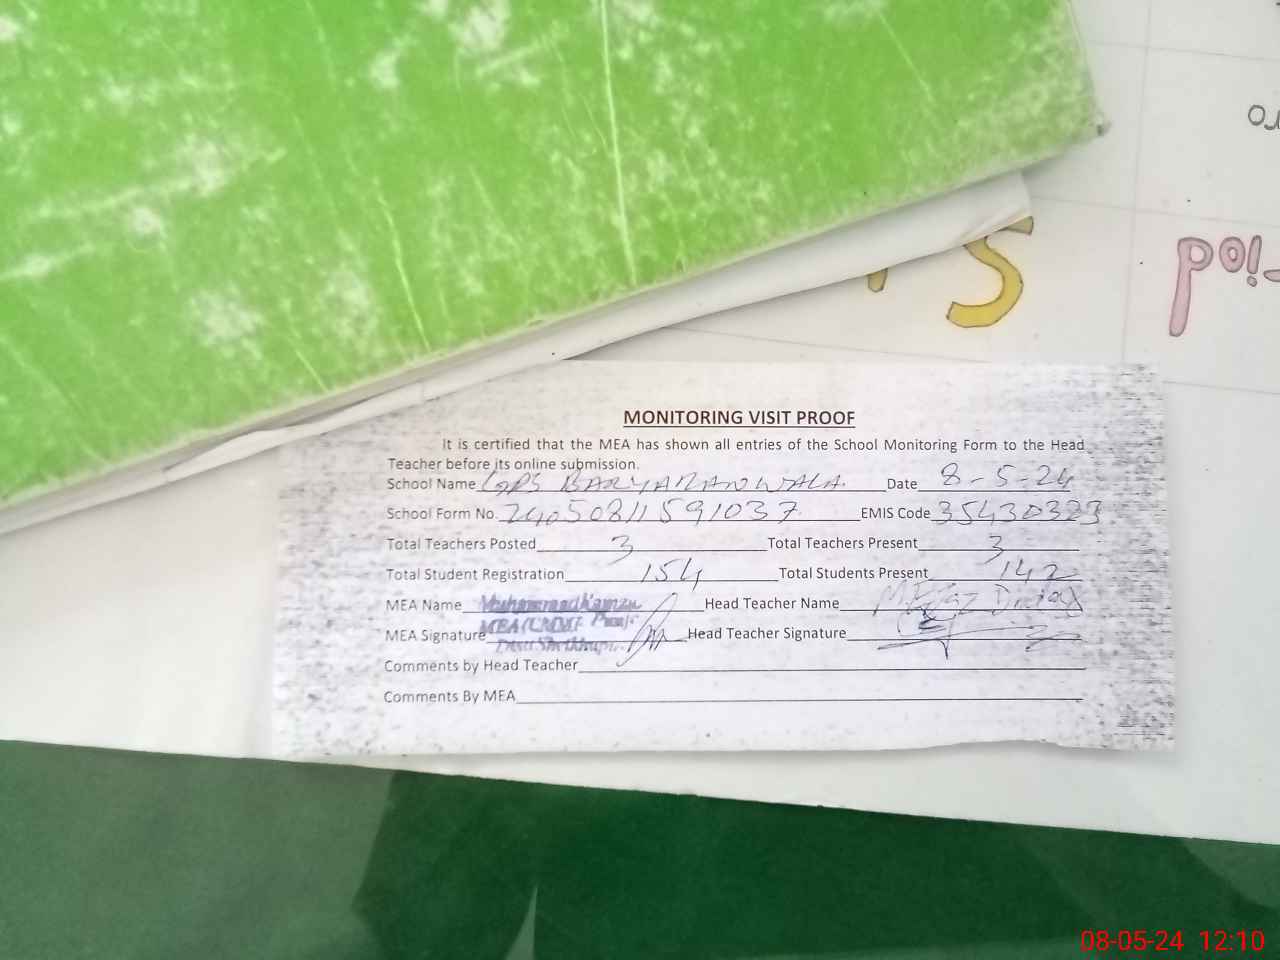 MONITORING VISIT PROOF
It is certified that the MEA has shown all entries of the School Monitoring Form to the Head
Teacher before its online submission.
School Name GPS BARYARANWALA. Date 8-5-24
School Form No. 24050811591037 EMIS Code 35430323
Total Teachers Posted 3 Total Teachers Present 3
Total Student Registration 154 Total Students Present 142
MEA Name Muhammad Head Teacher Name
MEA Signature MEA Head Teacher Signature
Comments by Head Teacher
Comments By MEA
08-05-24 12:10